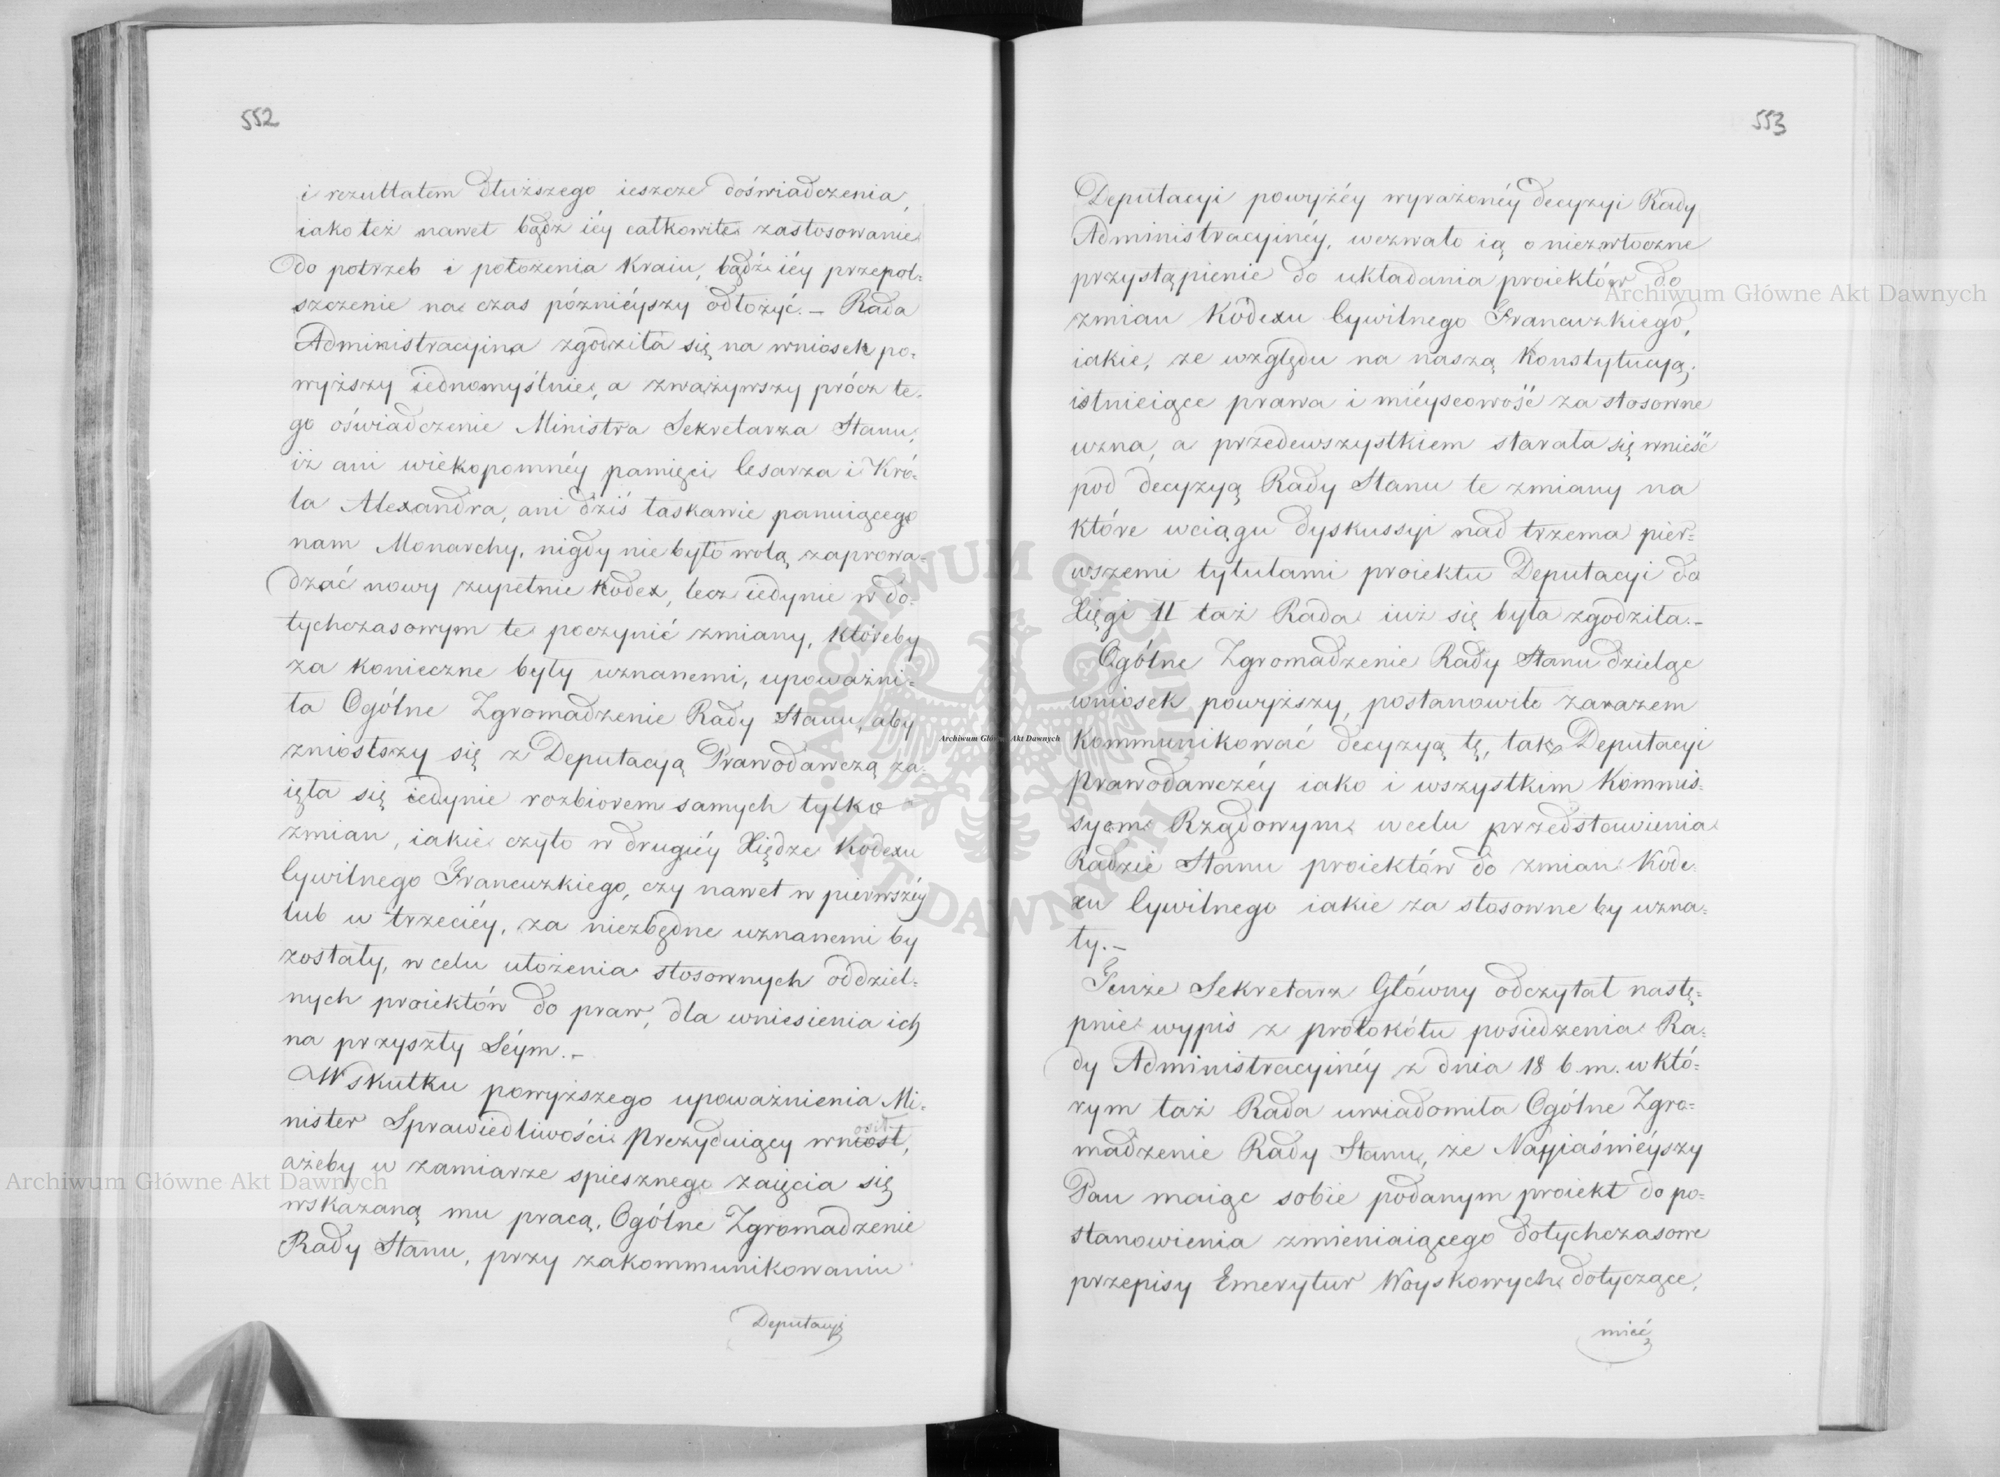 552
i rezultatem dłuższego ieszcze doświadczenia,
iako też nawet bądź iéy całkowite zastosowanie
do potrzeb i położenia Kraiu, bądź iéy przepol-
szczenie na czas późniéyszy odłożyć. — Rada
Administracyina zgodziła się na wniosek po-
wyższy iednomyślnie, a zważywszy prócz te-
go oświadczenie Ministra Sekretarza Stanu,
iż ani wiekopomnéy pamięci Cesarza i Kró-
la Alexandra, ani dziś łaskawie panuiącego
nam Monarchy, nigdy nie było wolą zaprowa-
dzać nowy zupełnie Kodex, lecz iedynie w do-
tychczasowym te poczynić zmiany, któreby
za konieczne były uznanemi, upoważni-
ła Ogólne Zgromadzenie Rady Stanu, aby
zniósłszy się z Deputacyą Prawodawczą za-
ięła się iedynie rozbiorem samych tylko
zmian, iakie czyto w drugiéy Xiędze Kodexu
Cywilnego Francuzkiego, czy nawet w pierwszéy
lub w trzeciéy, za niezbędne uznanemi by
zostały, w celu ułożenia stosownych oddziel-
nych proiektów do praw, dla wniesienia ich
na przyszły Séym. —
W skutku powyższego upoważnienia Mi-
nister Sprawiedliwości Prezyduiący wniosł,
ażeby w zamiarze spiesznego zaięcia się
wskazaną mu pracą, Ogólne Zgromadzenie
Rady Stanu, przy zakommunikowaniu
Deputacyi
553
Deputacyi powyżéy wyrażonéy decyzyi Rady
Administracyinéy, wezwało ią o niezwłoczne
przystąpienie do układania proiektów do
zmian Kodexu Cywilnego Francuzkiego,
iakie, ze względu na naszą Konstytucyą,
istnieiące prawa i mieyscowość za stosowne
uzna, a przedewszystkiem starała się wnieść
pod decyzyą Rady Stanu te zmiany na
które w ciągu dyskussyi nad trzema pier-
wszemi tytułami proiektu Deputacyi do
Xięgi II taż Rada iuż się była zgodziła. —
Ogólne Zgromadzenie Rady Stanu dzieląc
wniosek powyższy, postanowiło zarazem
kommunikować decyzyą tę, tak Deputacyi
Prawodawczéy iako i wszystkim Kommis-
syom Rządowym w celu przedstawienia
Radzie Stanu proiektów do zmian Kode-
xu Cywilnego iakie za stosowne by uzna-
ły. —
Tenże Sekretarz Główny odczytał nastę-
pnie wypis z protokółu posiedzenia Ra-
dy Administracyinéy z dnia 18 b. m. w któ-
rym taż Rada uwiadomiła Ogólne Zgro-
madzenie Rady Stanu, że Nayiaśniéyszy
Pan maiąc sobie podanym proiekt do po-
stanowienia zmieniaiącego dotychczasowe
przepisy Emerytur Woyskowych dotyczące,
mieć
Archiwum Główne Akt Dawnych
Archiwum Główne Akt Dawnych
Archiwum Główne Akt Dawnych
ARCHIWUM GŁÓWNE AKT DAWNYCH